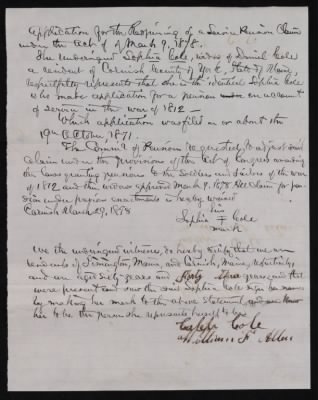 Application for the Reopening of a Service Pension Claim
under the Act of March 9, 1878.
The undersigned Sophia Cole, widow of Daniel Cole
a resident of Cornish County of York, State of Maine,
respectfully represents that she is the identical Sophia Cole
who made application for a pension on account
of service in the war of 1812 —
Which application was filed on or about the
19th October, 1871.
The Comr of Pensions is requested to adjust said
claim under the provisions of the Act of Congress amending
the laws granting pensions to the soldiers and sailors of the war
of 1812 and their widows approved March 9, 1878. Her claim for pen-
sion under previous enactments is hereby waived
Cornish March 29, 1878
her
Sophia + Cole
mark
We the undersigned witnesses, do hereby certify that we are
residents of Limington, Maine and Cornish, Maine, respectively,
and are aged sixty years and forty three years, and that
were present and saw the said Sophia Cole sign her name
by making her mark to the above statement, and we know
her to be the person she represents herself to be
Caleb Cole
William F Allen